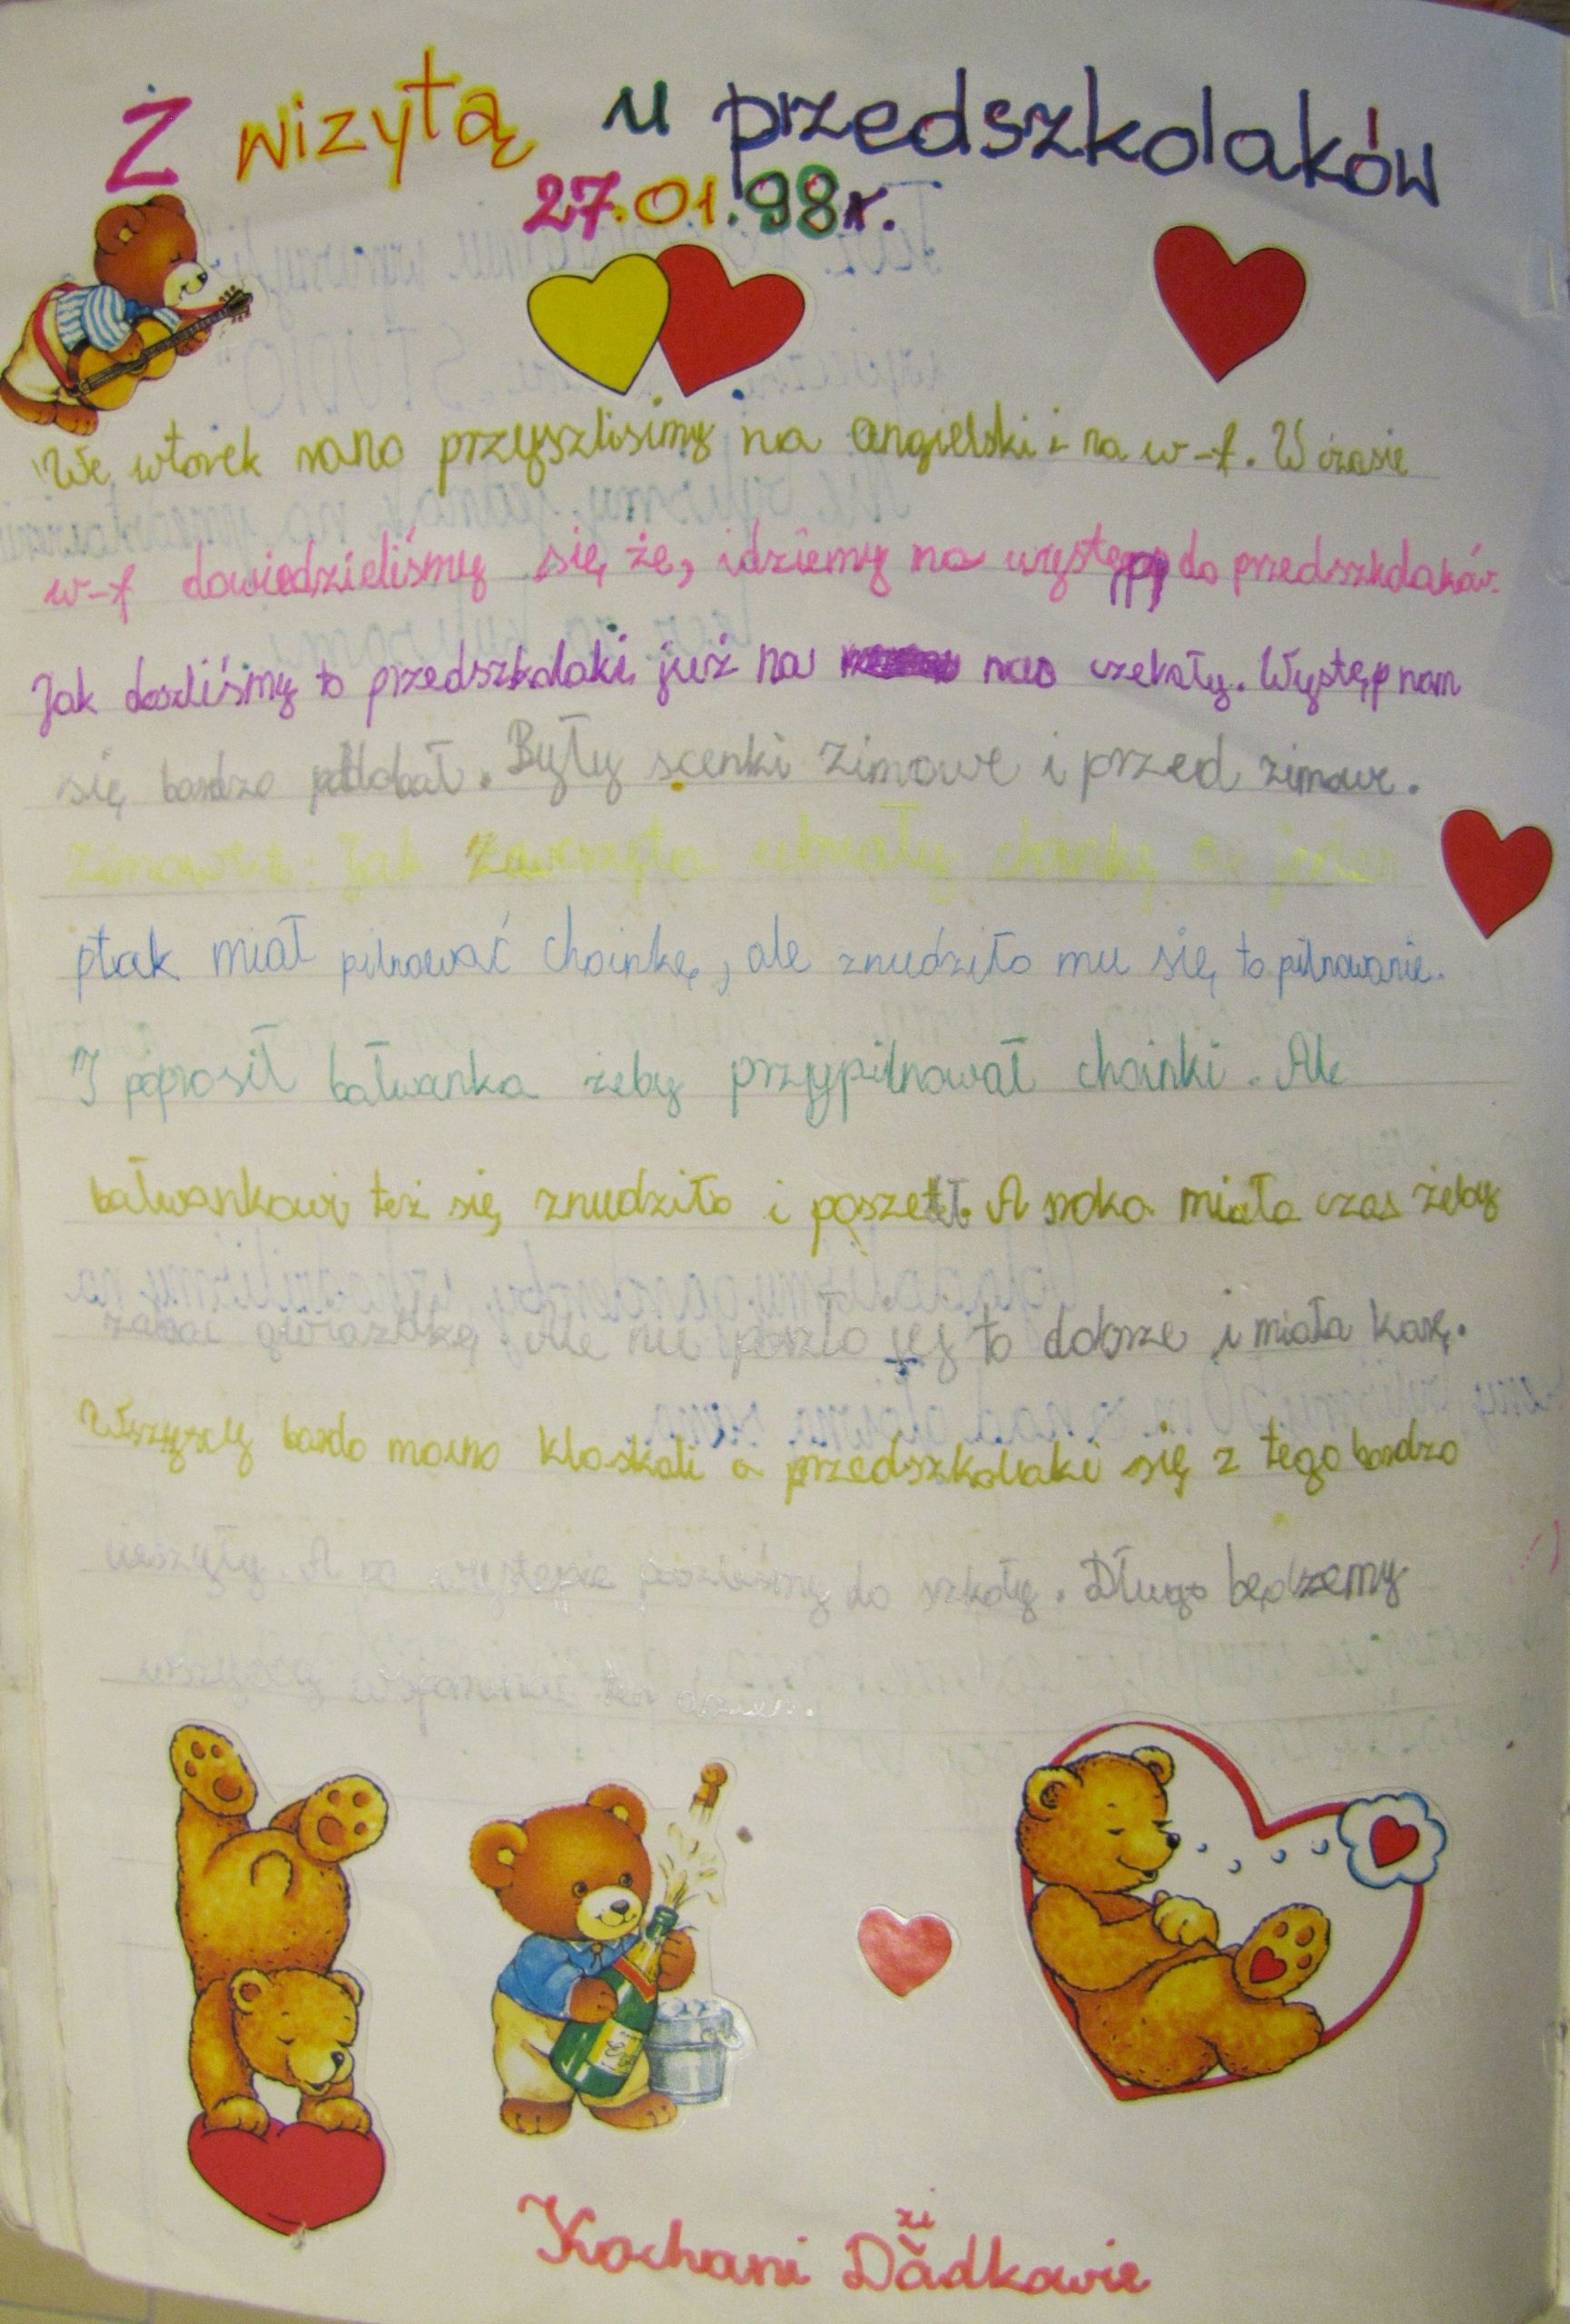 Z wizytą u przedszkolaków
27.01.98r.
We wtorek rano przyszlisimy na angielski i na w-f. W czasie
w-f dowiedzieliśmy się że, idziemy na występ do przedszkolaków.
Jak doszliśmy to przedszkolaki już na nas czekały. Występ nam
się bardzo podobał. Były scenki zimowe i przed zimowe.
Zimowe: Jak Zwierzęta ubrały choinkę a jeden
ptak miał pilnować choinkę, ale znudziło mu się to pilnowanie.
I poprosił bałwanka żeby przypilnował choinki. Ale
bałwankowi też się znudziło i poszetł. A sroka miała czas żeby
zabać gwiazdkę. Ale nie poszło jej to dobrze i miała karę.
Wszyscy bardo mocno klaskali a przedszkolaki się z tego bardzo
cieszyły. A po występie poszliśmy do szkoły. Długo będzemy
wszyscy wspominać ten dzień.
Kochani Dziadkowie